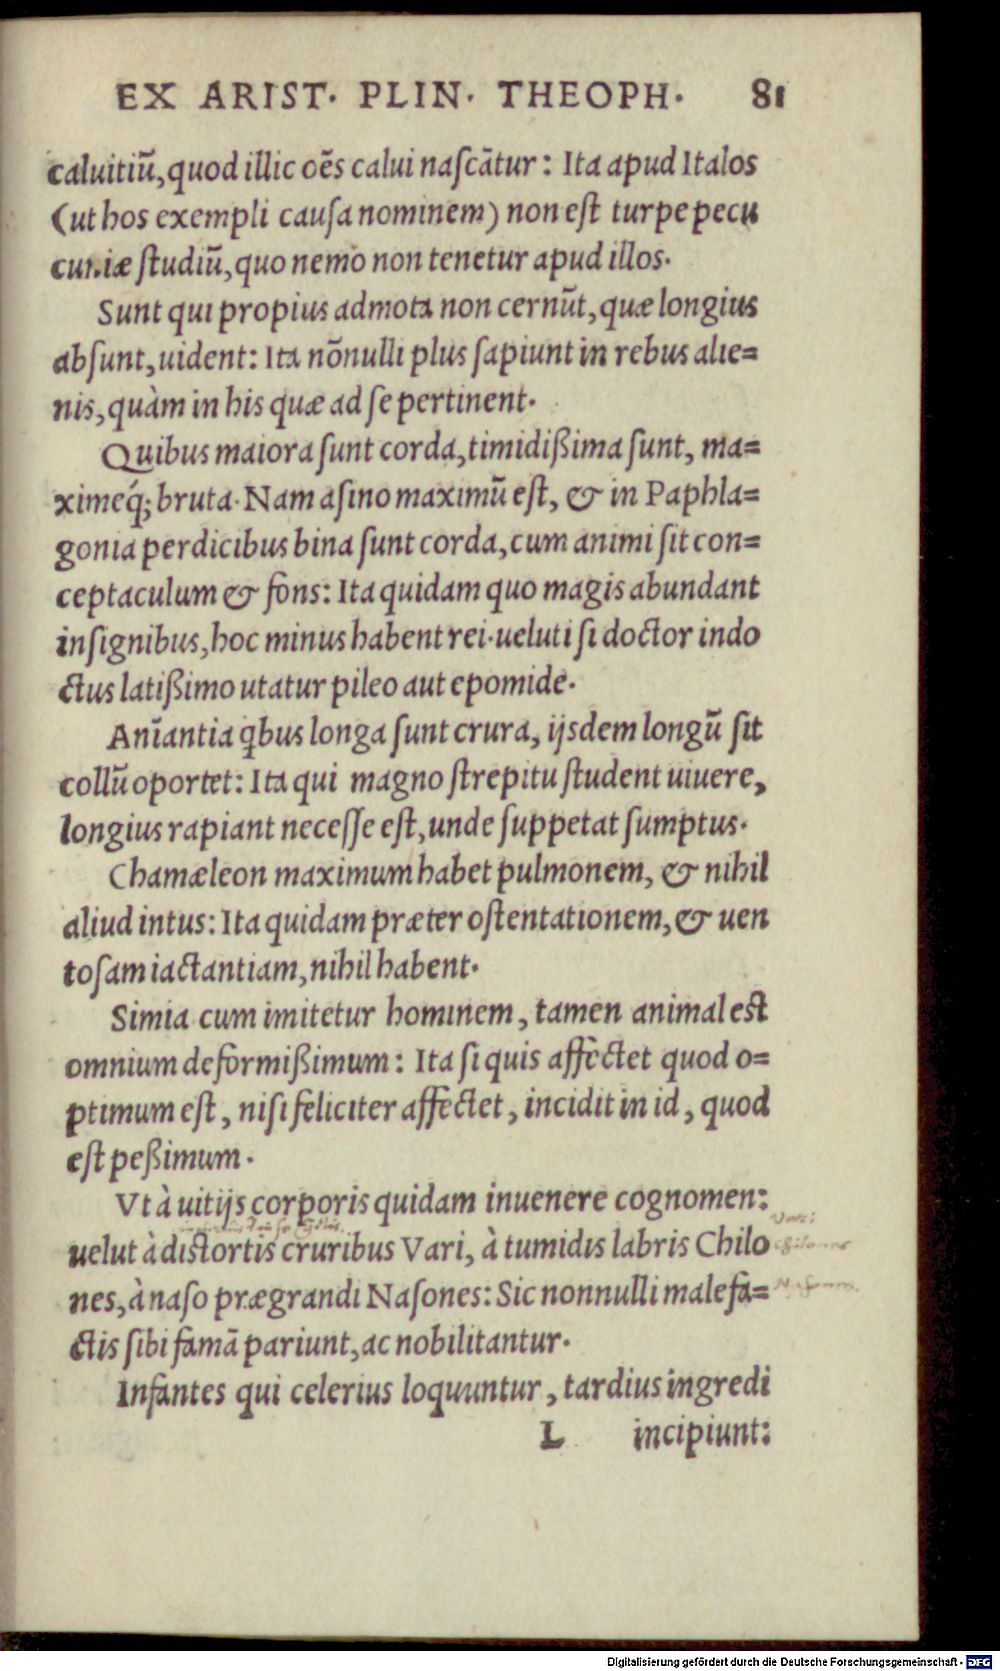 EX ARIST. PLIN. THEOPH. 81
caluitiū, quod illic oēs calui naſcātur: Ita apud Italos
(ut hos exempli cauſa nominem) non eſt turpe pecu
cuniæ ſtudiū, quo nemo non tenetur apud illos.
Sunt qui propius admota non cernūt, quæ longius
abſunt, uident: Ita nōnulli plus ſapiunt in rebus alie=
nis, quàm in his quæ ad ſe pertinent.
Quibus maiora ſunt corda, timidißima ſunt, ma=
ximeq́; bruta. Nam aſino maximū eſt, & in Paphla=
gonia perdicibus bina ſunt corda, cum animi ſit con=
ceptaculum & fons: Ita quidam quo magis abundant
inſignibus, hoc minus habent rei. ueluti ſi doctor indo
ctus latißimo utatur pileo aut epomide.
Anīantia qbus longa ſunt crura, ijsdem longū ſit
collū oportet: Ita qui magno ſtrepitu ſtudent uiuere,
longius rapiant neceſſe eſt, unde ſuppetat ſumptus.
Chamæleon maximum habet pulmonem, & nihil
aliud intus: Ita quidam præter oſtentationem, & uen
toſam iactantiam, nihil habent.
Simia cum imitetur hominem, tamen animal eſt
omnium deformißimum: Ita ſi quis affectet quod o=
ptimum eſt, niſi feliciter affectet, incidit in id, quod
eſt peßimum.
Vt à uitijs corporis quidam inuenere cognomen:
uelut à diſtortis cruribus Vari, à tumidis labris Chilo
nes, à naſo prægrandi Naſones: Sic nonnulli malefa=
ctis ſibi famā pariunt, ac nobilitantur.
Infantes qui celerius loquuntur, tardius ingredi
L incipiunt:
Digitalisierung gefördert durch die Deutsche Forschungsgemeinschaft - DFG